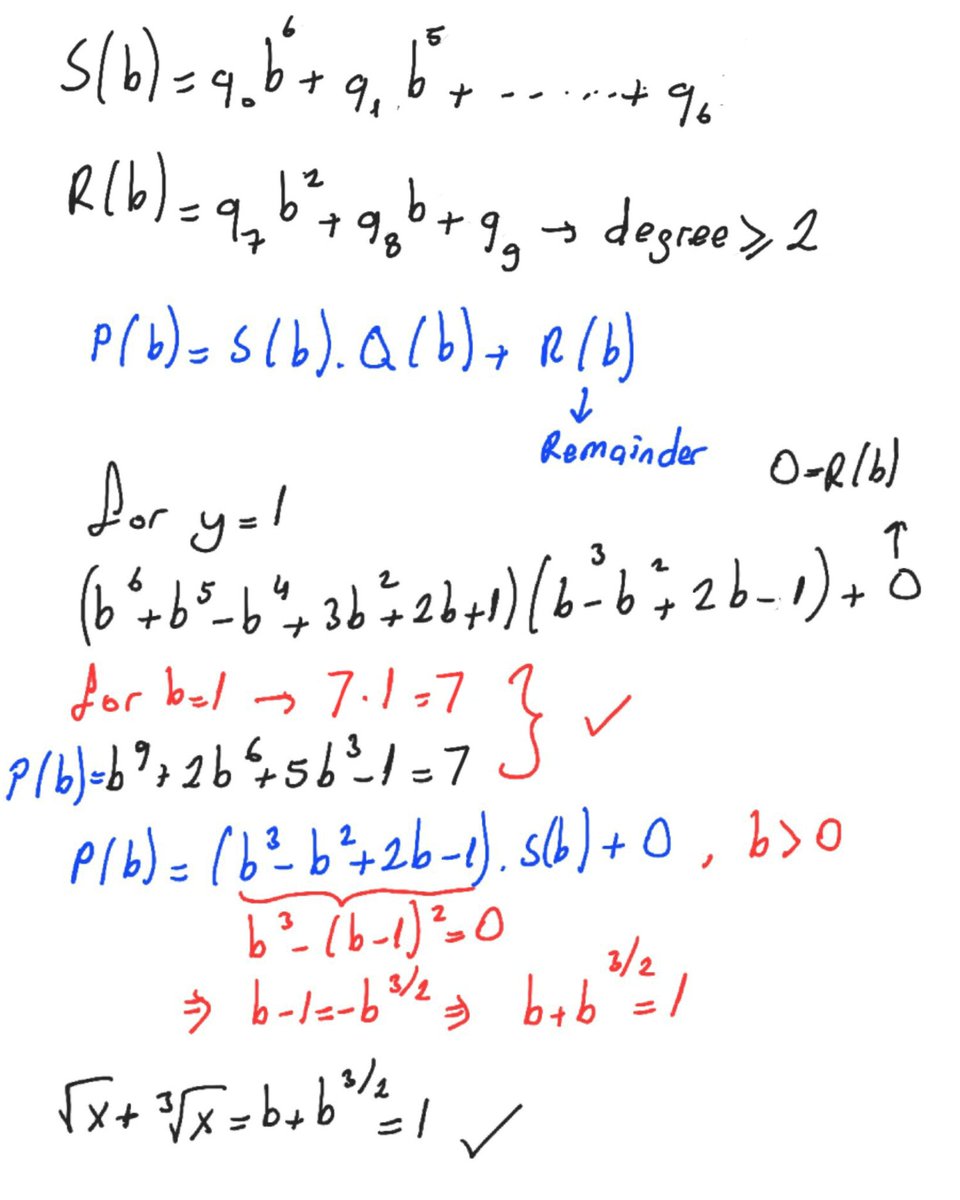 S(b) = q₀b⁶ + q₁b⁵ + ------+ q₆
R(b) = q₇b² + q₈b + q₉ → degree ≥ 2
P(b) = S(b).Q(b) + R(b)
↓
Remainder
0=R(b)
↑
for y=1
(b⁶+b⁵-b⁴+3b²+2b+1)(b³-b²+2b-1)+0
for b=1 → 7.1=7 } ✓
P(b)=b⁹+2b⁶+5b³-1=7
P(b) = (b³-b²+2b-1).S(b)+0 , b>0
b³-(b-1)²=0
⇒ b-1=-b^3/2 ⇒ b+b^3/2=1
√x + ³√x = b+b^3/2 = 1 ✓